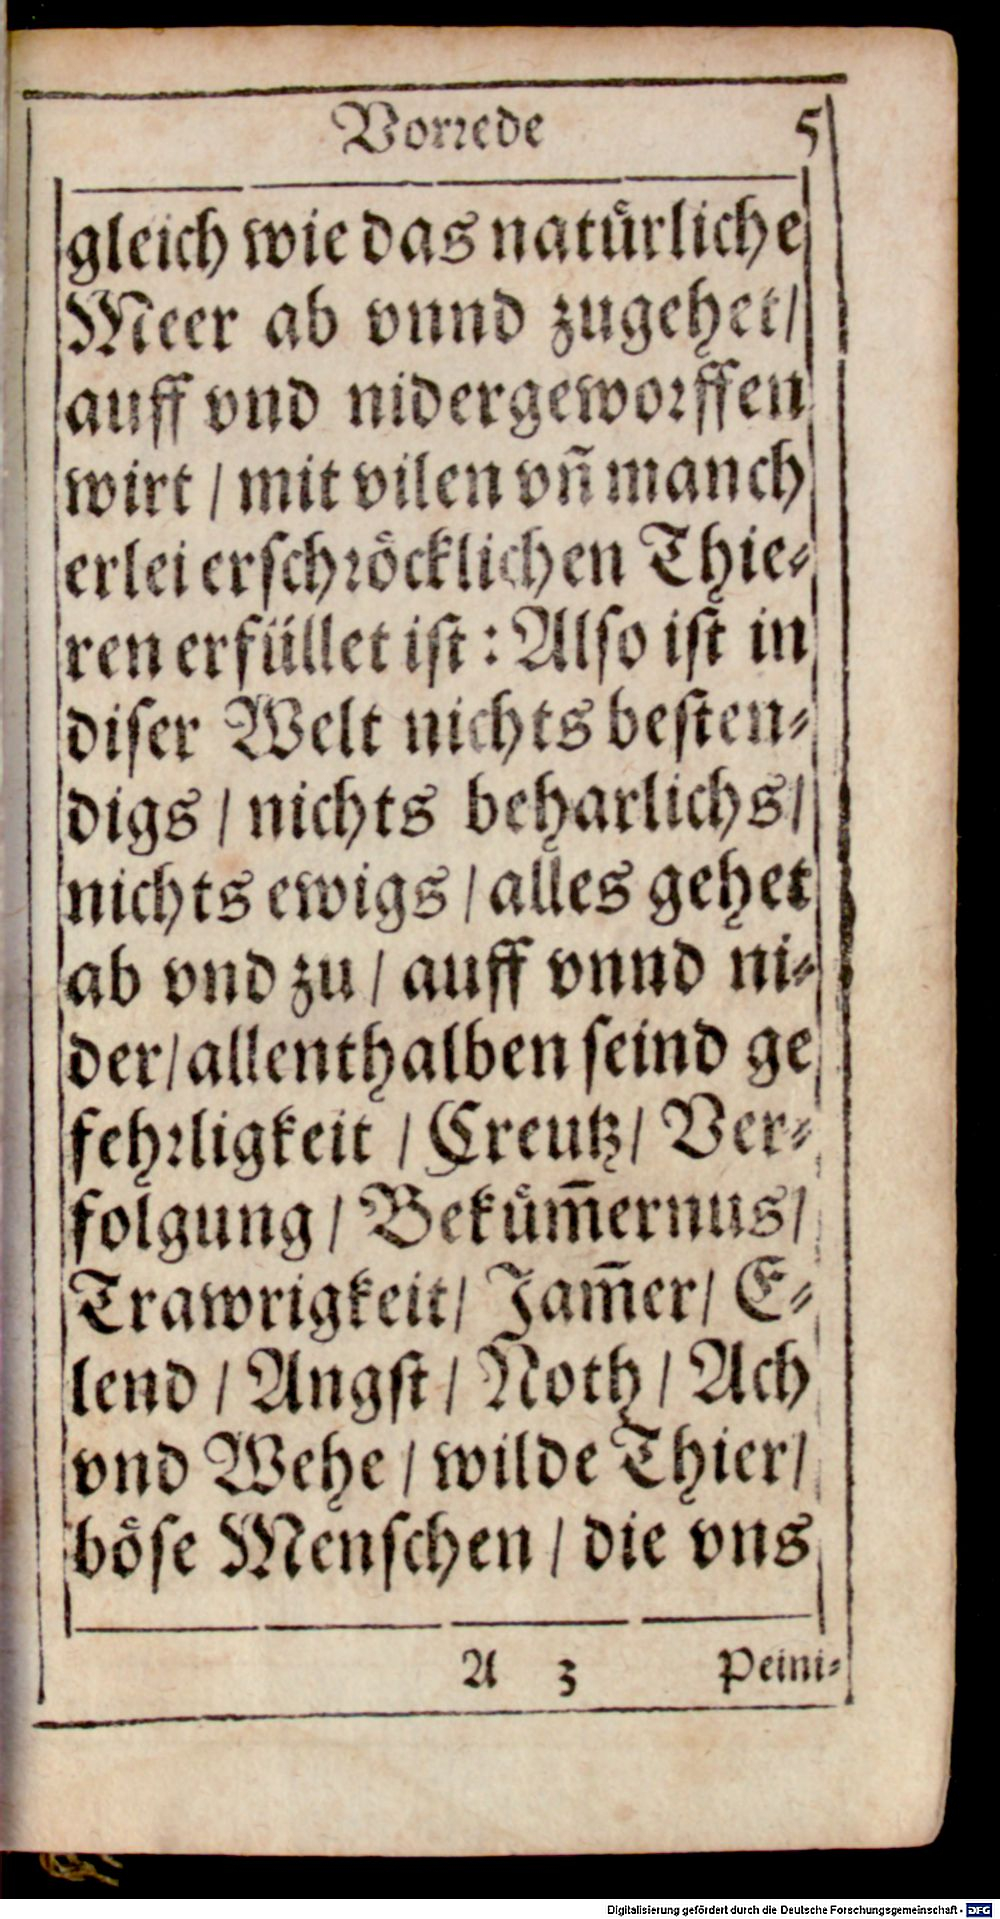 Vorꝛede 5
gleich wie das natuͤrliche
Meer ab vnnd zugehet/
auff vnd nidergewoꝛffen
wirt / mit vilen vñ manch
erlei erſchꝛoͤcklichen Thie⸗
ren erfüllet iſt : Alſo iſt in
diſer Welt nichts beſten⸗
digs / nichts beharlichs/
nichts ewigs / alles gehet
ab vnd zu / auff vnnd ni⸗
der/ allenthalben ſeind ge
fehꝛligkeit / Creutz/ Ver⸗
folgung / Bekuͤm̄ernus/
Trawrigkeit/ Jam̄er/ E⸗
lend / Angſt / Noth / Ach
vnd Wehe / wilde Thier/
boͤſe Menſchen / die vns
A 3 Peini⸗
Digitalisierung gefördert durch die Deutsche Forschungsgemeinschaft - DFG